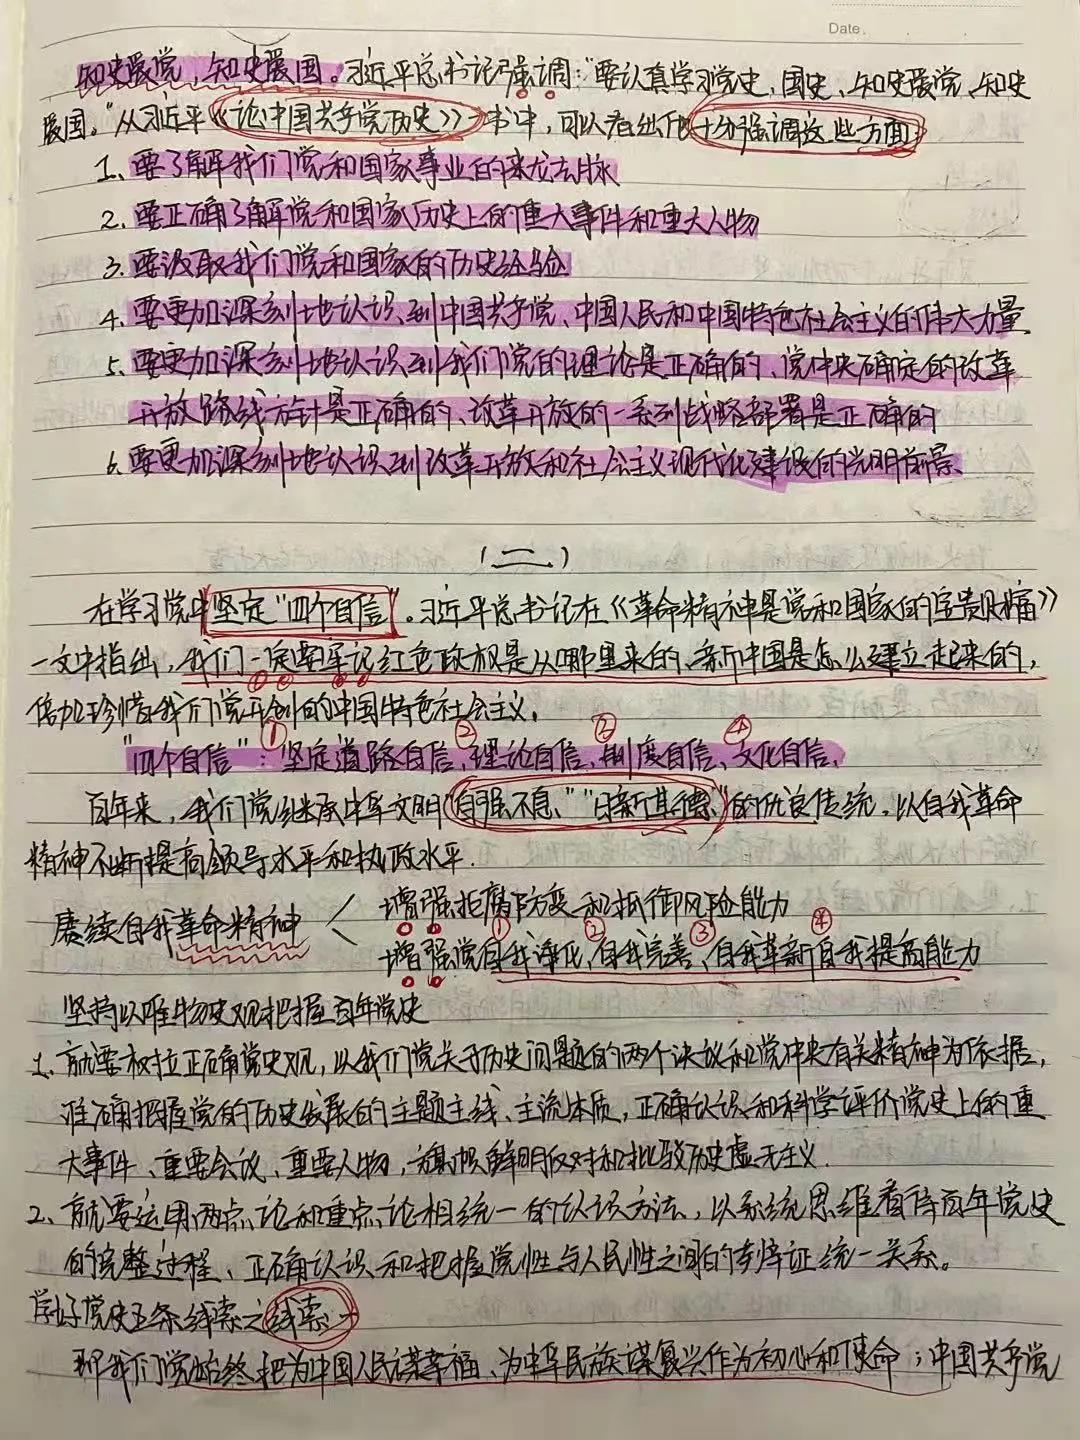 Date.
知史爱党，知史爱国。习近平总书记强调：“要认真学习党史、国史、知史爱党、知史
爱国。”从习近平《论中国共产党历史》一书中，可以看出他十分强调这些方面：
1、要了解我们党和国家事业的来龙去脉
2、要正确了解党和国家历史上的重大事件和重大人物
3、要汲取我们党和国家的历史经验
4、要更加深刻地认识到中国共产党、中国人民和中国特色社会主义的伟大力量
5、要更加深刻地认识到我们党的理论是正确的、党中央确定的改革
开放路线方针是正确的、改革开放的一系列战略部署是正确的
6、要更加深刻地认识到改革开放和社会主义现代化建设的光明前景、
（二）
在学习党中坚定“四个自信”。习近平总书记在《革命精神是党和国家的宝贵财富》
一文中指出，我们一定要牢记红色政权是从哪里来的、新中国是怎么建立起来的，
倍加珍惜我们党开创的中国特色社会主义。
“四个自信”：①坚定道路自信、②理论自信、③制度自信、④文化自信、
百年来，我们党继承中华文明“自强不息、”“日新其德、”的优良传统，以自我革命
精神不断提高领导水平和执政水平.
赓续自我革命精神
增强拒腐防变和抵御风险能力
增强党①自我净化、②自我完善、③自我革新④自我提高能力
坚持以唯物史观把握百年党史
1、就要树立正确党史观，以我们党关于历史问题的两个决议和党中央有关精神为依据，
准确把握党的历史发展的主题主线、主流本质，正确认识和科学评价党史上的重
大事件、重要会议、重要人物，旗帜鲜明反对和批驳历史虚无主义.
2、就要运用两点论和重点论相统一的认识方法，以系统思维看待百年党史
的完整过程、正确认识和把握党性与人民性之间的辩证统一关系。
学好党史五条线索之线索一
即我们党始终把为中国人民谋幸福、为中华民族谋复兴作为初心和使命；中国共产党